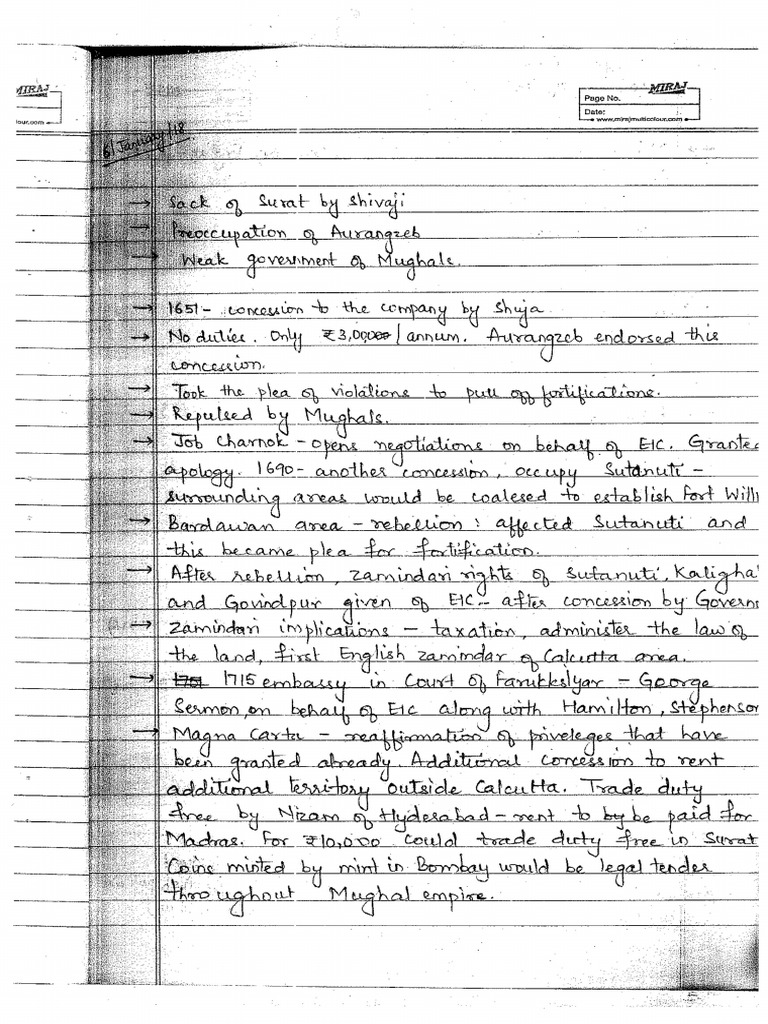 MIRAJ
MIRAJ
Page No.
Date:
lour.com
www.mirajmulticolour.com
6/January/18
→ Sack of Surat by Shivaji
→ Preoccupation of Aurangzeb
→ Weak government of Mughals.
→ 1651 - concession to the company by Shuja
→ No duties. Only ₹3,000/annum. Aurangzeb endorsed this
concession.
→ Took the plea of violations to pull off fortifications.
→ Repulsed by Mughals.
→ Job Charnok - opens negotiations on behalf of EIC. Grante
apology. 1690 - another concession, occupy Sutanuti -
surrounding areas would be coalesed to establish Fort Willi
→ Bardawan area - rebellion : affected Sutanuti and
this became plea for fortification.
→ After rebellion, zamindari rights of Sutanuti, Kaligha
and Govindpur given of EIC - after concession by Govern
→ Zamindari implications - taxation, administer the law of
the land, first English zamindar of Calcutta area.
→ 1715 embassy in Court of Farukksiyar - George
Sermon, on behalf of EIC along with Hamilton, Stephenson
→ Magna Carta - reaffirmation of priveleges that have
been granted already. Additional concession to rent
additional territory outside Calcutta. Trade duty
free by Nizam of Hyderabad - rent to by be paid for
Madras. For ₹10,000 could trade duty free in Surat
Coins minted by mint in Bombay would be legal tender
throughout Mughal empire.